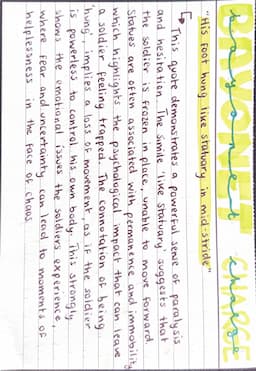 BAYONET
bayonet charge
"His foot hung like statuary in mid-stride"
↳ This quote demonstrates a powerful sense of paralysis
and hesitation. The simile 'like statuary' suggests that
the soldier is frozen in place, unable to move forward.
Statues are often associated with permanence and immobility
which highlights the psychological impact that can leave
a soldier feeling trapped. The connotation of being
'hung' implies a loss of movement, as if the soldier
is powerless to control his own body. This strongly
shows the emotional issues the soldiers experience,
where fear and uncertainty can lead to moments of
helplessness in the face of chaos